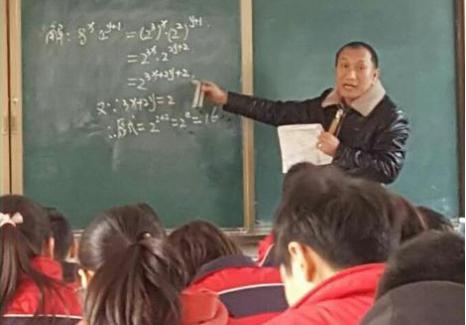 解: 8ˣ·4ʸ⁺¹=(2³)ˣ·(2²)ʸ⁺¹.
=2³ˣ·2²ʸ⁺²
=2³ˣ⁺²ʸ⁺²
又∵3x+2y=2
∴原式=2²⁺²=2⁴=16